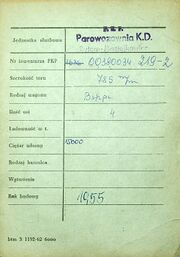 P. K. P.
Jednostka służbowa Parowozownia K.D.
Nr inwentarza PKP 00380034 219-2
Szerokość toru 785 m/m
Rodzaj wagonu
Ilość osi 4
Ładowność w t.
Ciężar własny 15000
Rodzaj hamulca
Wgłośnienie
Rok budowy 1955